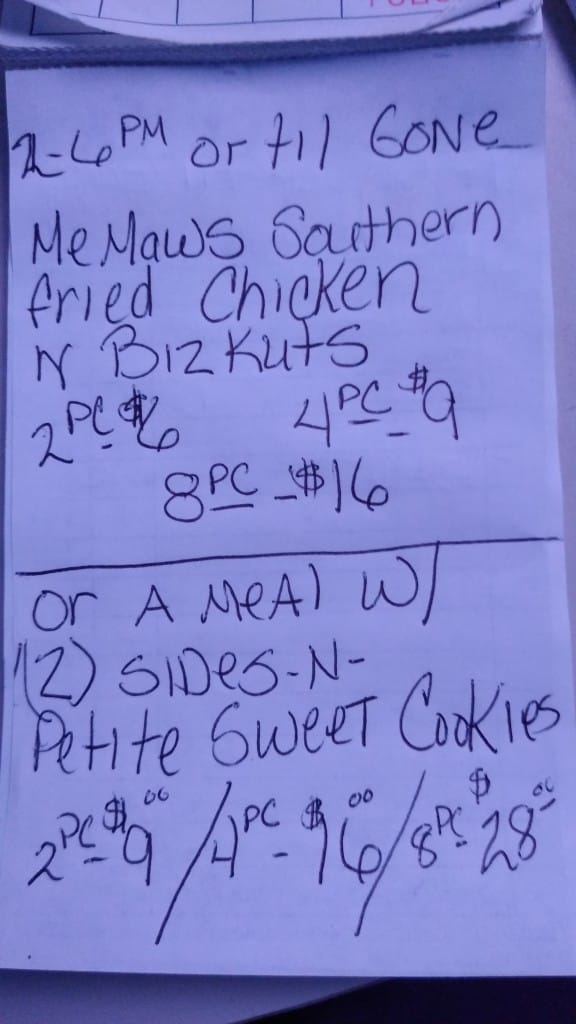 2-6 PM or til GONe
MeMaws Southern
fried Chicken
N BizKuts
2 PC $6 4 PC - $9
8 PC - $16
or A MeAl W/
(2) SiDes-N-
Petite SweeT Cookies
2 PC - $9 00 / 4 PC - $16 00 / 8 PC - $28 00